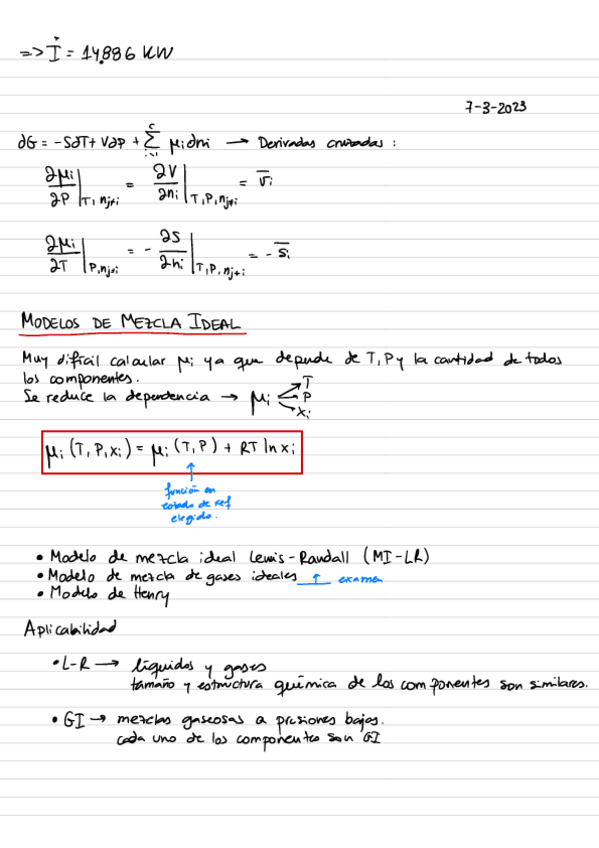 => İ = 14,886 KW
7-3-2023
∂G = -S∂T + V∂P + Σ_{i=1}^{c} μi∂ni → Derivadas cruzadas :
∂μi/∂P |T, nj≠i = ∂V/∂ni |T,P,nj≠i = v̄i
∂μi/∂T |P,nj≠i = - ∂S/∂ni |T,P,nj≠i = - s̄i
MODELOS DE MEZCLA IDEAL
Muy difícil calcular μi ya que depende de T, P y la cantidad de todos
los componentes.
Se reduce la dependencia → μi → T
P
xi
μi (T, P, xi) = μi (T, P) + RT ln xi
↑
función en
estado de ref
elegido.
• Modelo de mezcla ideal Lewis-Randall (MI-LR)
• Modelo de mezcla de gases ideales ↑ examen
• Modelo de Henry
Aplicabilidad
• L-R → líquidos y gases
tamaño y estructura química de los componentes son similares.
• GI → mezclas gaseosas a presiones bajas.
cada uno de los componentes son GI